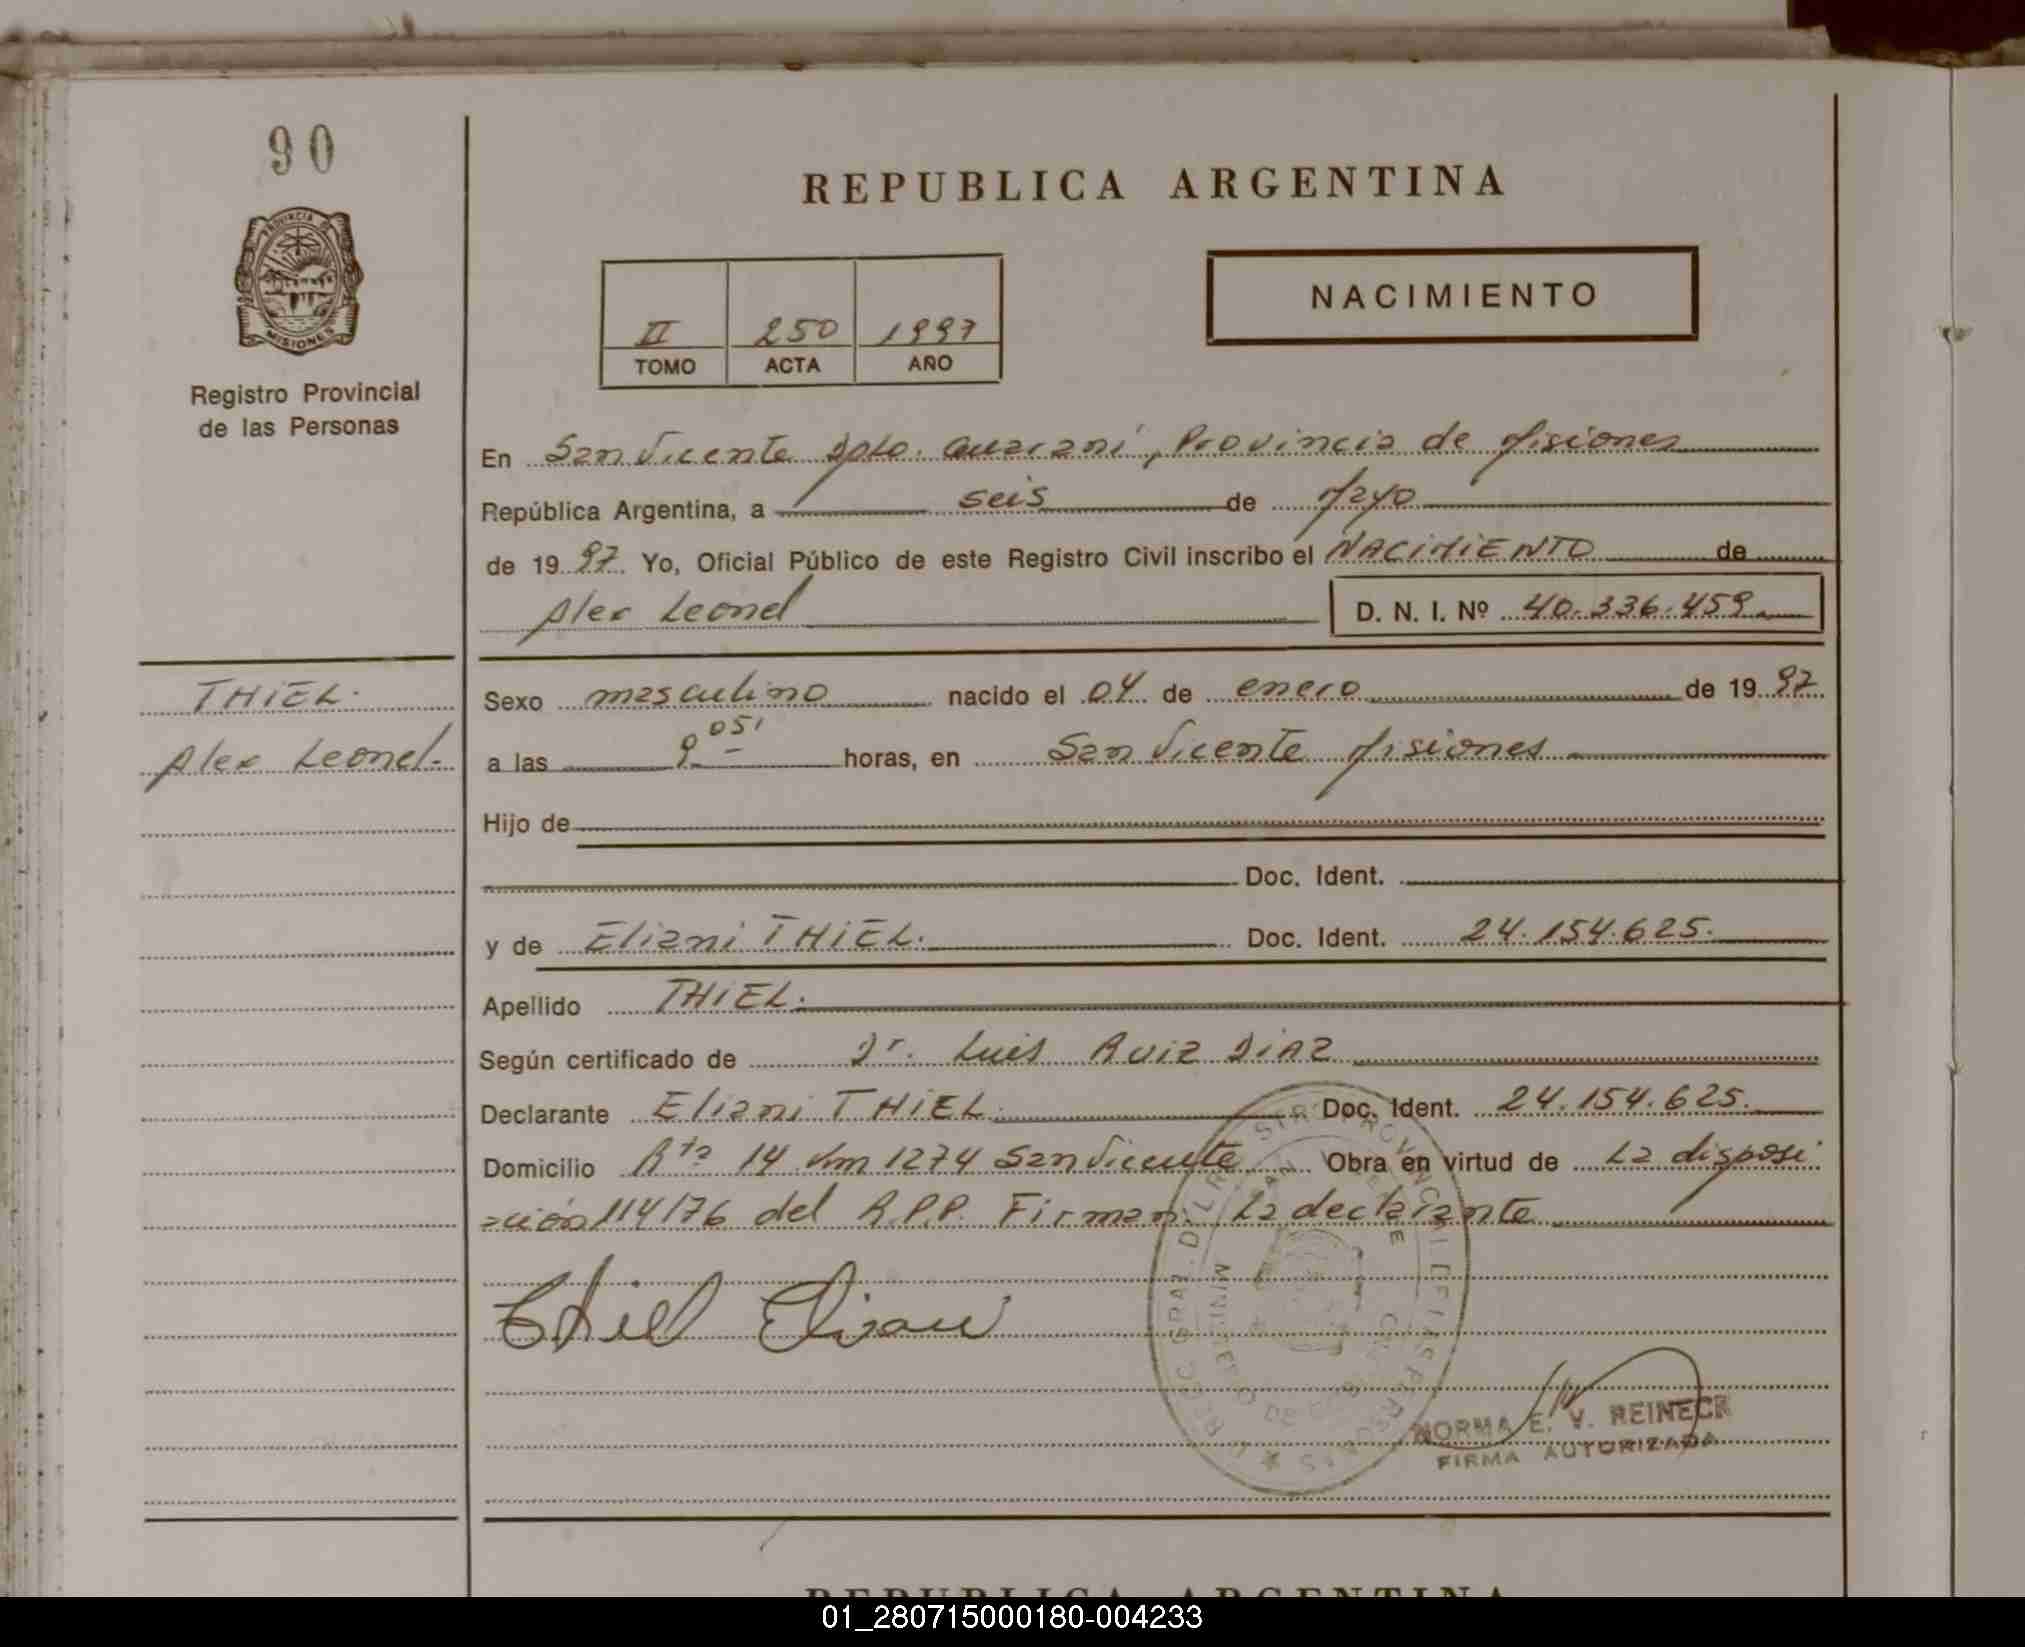 90
REPUBLICA ARGENTINA
PROVINCIA DE
MISIONES
Registro Provincial
de las Personas
NACIMIENTO
II 250 1997
TOMO ACTA AÑO
En San Vicente Dpto. Guaraní, Provincia de Misiones
República Argentina, a seis de Mayo
de 1997. Yo, Oficial Público de este Registro Civil inscribo el NACIMIENTO de
Alex Leonel D. N. I. Nº 40.336.459
THIEL.
Alex Leonel.
Sexo masculino nacido el 04 de enero de 1997
a las 9 05' horas, en San Vicente Misiones
Hijo de
Doc. Ident.
y de Eliani THIEL. Doc. Ident. 24.154.625.
Apellido THIEL.
Según certificado de Dr. Luis RUIZ DIAZ
Declarante Eliani THIEL. Doc. Ident. 24.154.625.
Domicilio Rta 14 km 1274 San Vicente Obra en virtud de La disposi
ción 114/76 del R.P.P. Firman: La declarante
Thiel Eliani
NORMA E. V. REINECK
FIRMA AUTORIZADA
REPUBLICA ARGENTINA
01_280715000180-004233